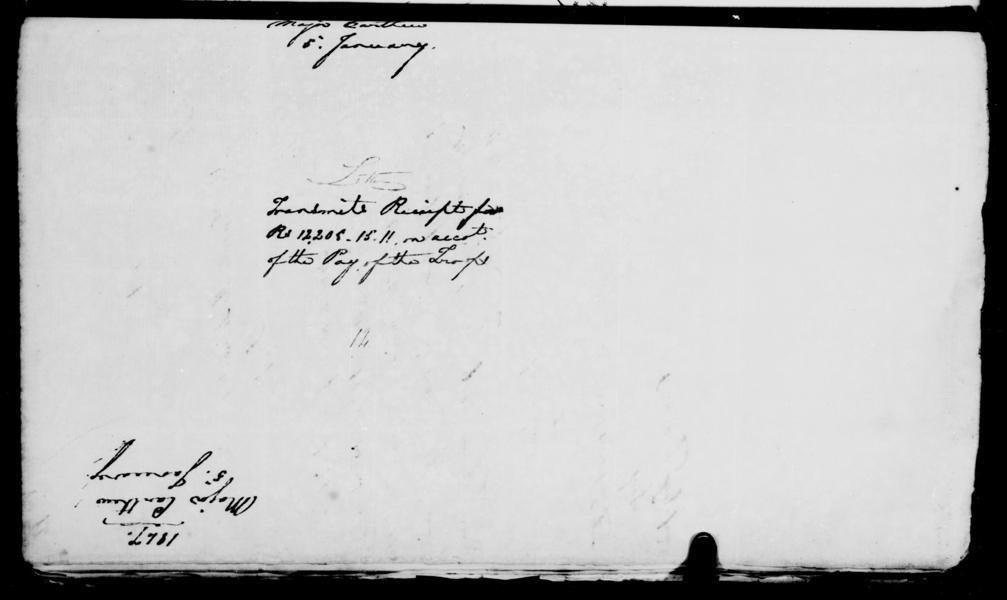 Major Carthew
5th January.
Letter
Transmits Receipts for
Rs 12,205-15.11, on accot.
of the Pay, of the Troops
14
1847.
Major Carthew
5th January.